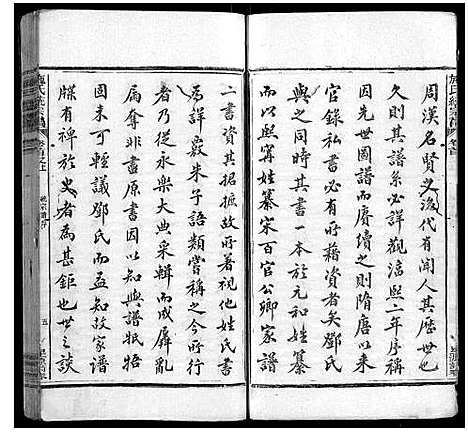 周漢名賢又後代有聞人其歷世也
久則其譜系必詳觀淳熙二年序稱
因先世圖而賡續之則隋唐以來
官錄私書必有所藉資者矣鄧氏
與同時書一本於元和姓纂
而以熙寧姓纂宋百官公卿家譜
二書資其捃摭故所著視他姓氏書
為詳嚴朱子語類嘗稱之今所行
者乃從永樂大典采輯而成屏亂
屬奪非盡原書因以知與譜牴牾
固未可輕議鄧氏而益知故家譜
牒有裨於史者為甚鉅也世之談
施氏統宗譜
卷首
五